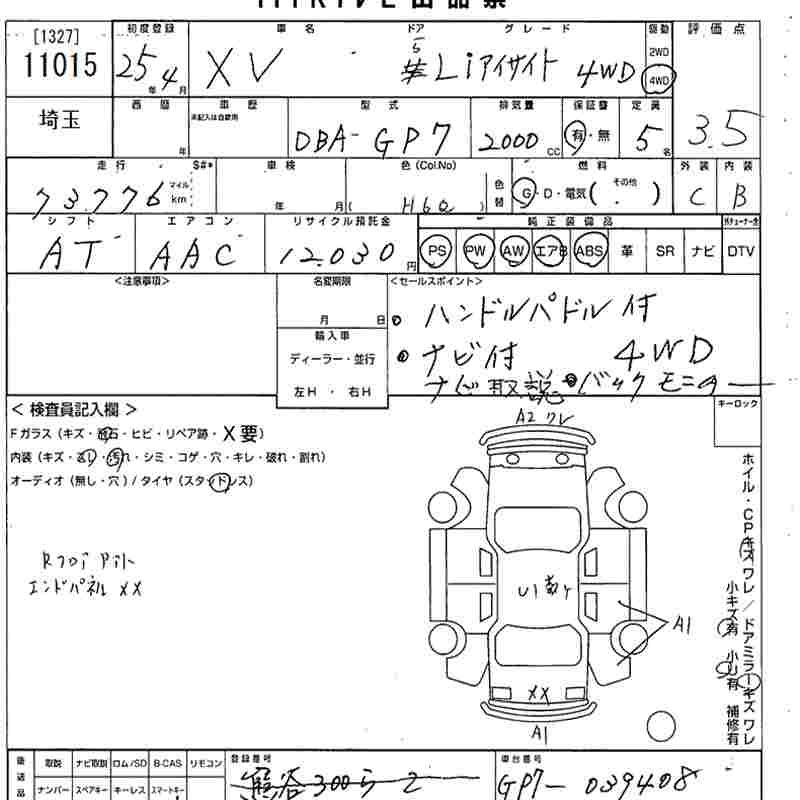 [1327]
11015
初度登録 車名 ドア グレード 駆動 評価点
25年 4月 XV 5 Liアイサイト 4WD 2WD 4WD
埼玉
西暦 車歴 型式 排気量 保証書 定員
未記入は自家用
年 DBA-GP7 2000cc 有・無 5名 3.5
走行 S#* 車検 色(Col.No) 燃料 外装 内装
73.776 マイル km 年 月 ( H6Q ) 色替 G・D・電気( その他 ) C B
シフト エアコン リサイクル預託金 純正装備品
AT AAC 12.030円 PS PW AW エアB ABS 革 SR ナビ DTV
<注意事項> 名変期限 <セールスポイント>
月 日 ハンドルパドル付
輸入車
ディーラー・並行 ナビ付 4WD
左H ・ 右H ナビ取説 バックモニター
キーロック
<検査員記入欄>
Fガラス(キズ・飛石・ヒビ・リペア跡・X要)
内装(キズ・返し・汚れ・シミ・コゲ・穴・キレ・破れ・割れ)
オーディオ(無し・穴)/タイヤ(スタッドレス)
A2 ワレ
エンドパネル XX
U1
A1
XX
A1
ホイル・CPキズワレ/ドアミラーキズワレ
小キズ有 小U有 補修有
後送品 取説 ナビ取説 ロム/SD B-CAS リモコン 登録番号 車台番号
ナンバー スペアキー キーレス スマートキー 300 2 GP7-039408